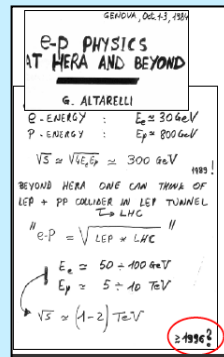 GENOVA, Oct. 1-3, 1984
e-p PHYSICS
AT HERA AND BEYOND
G. ALTARELLI
e-ENERGY : Ee ≃ 30 GeV
P-ENERGY : Ep ≃ 800 GeV
√S ≃ √4EeEp ≃ 300 GeV
1989!
BEYOND HERA ONE CAN THINK OF
LEP + PP COLLIDER IN LEP TUNNEL
↳ LHC
"e-p = √LEP × LHC"
Ee ≃ 50 ÷ 100 GeV
Ep ≃ 5 ÷ 10 TeV
√S ≃ (1-2) TeV
≥1996?